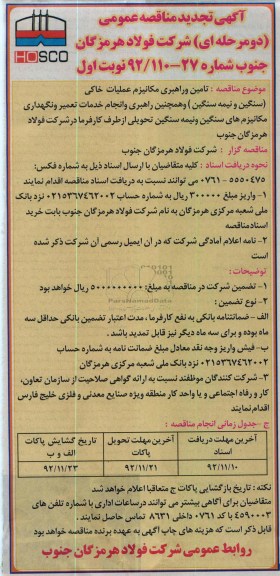 آگهی تجدید مناقصه عمومی
(دومرحله ای) شرکت فولاد هرمزگان
جنوب شماره ۲۷-۹۲/۱۱۰۰ نوبت اول
HOSCO
موضوع مناقصه : تامین وراهبری مکانیزم عملیات خاکی
(سنگین و نیمه سنگین ) وهمچنین راهبری وانجام خدمات تعمیر ونگهداری
مکانیزم های سنگین ونیمه سنگین تحویلی ازطرف کارفرما درشرکت فولاد
هرمزگان جنوب
مناقصه گزار : شرکت فولاد هرمزگان جنوب
نحوه دریافت اسناد : کلیه متقاضیان با ارسال اسناد ذیل به شماره فکس:
۵۵۵۰۴۷۵ -۰۷۶۱ می توانند نسبت به دریافت اسناد مناقصه اقدام نمایند
۱- واریز مبلغ ۳۰۰۰۰۰ ریال به شماره حساب ۰۲۱۵۳۶۷۴۶۲۰۰۲ نزد بانک
ملی شعبه مرکزی هرمزگان به نام شرکت فولاد هرمزگان جنوب بابت خرید
اسنادمناقصه
۲- نامه اعلام آمادگی شرکت که در ان ایمیل رسمی آن شرکت ذکر شده
است
توضیحات :
۱- تضمین شرکت در مناقصه به مبلغ: ۵۰۰۰۰۰۰۰۰۰ ریال خواهد بود
۲- نوع تضمین :
الف - ضمانتنامه بانکی به نفع کارفرما ، مدت اعتبار تضمین بانکی حداقل سه
ماه بوده و برای سه ماه دیگر نیز قابل تمدید باشد .
ب- فیش واریز وجه نقد معادل مبلغ ضمانت نامه به شماره حساب
۰۲۱۵۳۶۷۴۶۲۰۰۲ نزد بانک ملی شعبه مرکزی هرمزگان
۳- شرکت کنندگان موظفند نسبت به ارائه گواهی صلاحیت از سازمان تعاون،
کار و رفاه اجتماعی و یا واحد کار منطقه ویژه صنایع معدنی و فلزی خلیج فارس
اقدام نمایند
ج -جدول زمانی انجام مناقصه :
آخرین مهلت دریافت اسناد | آخرین مهلت تحویل پاکات | تاریخ گشایش پاکات الف و ب
۹۲/۱۱/۱۰ | ۹۲/۱۱/۲۱ | ۹۲/۱۱/۲۳
نکته : تاریخ بازگشایی پاکات ج متعاقبا اعلام خواهد شد
متقاضیان برای آگاهی بیشتر می توانند درساعات اداری با شماره تلفن های
۴۵۹۰۰۰۳ با کد ۰۷۶۱ داخلی ۸۶۳۱ تماس حاصل نمایند .
قابل ذکر است که هزینه های چاپ آگهی به عهده برنده مناقصه خواهد بود
روابط عمومی شرکت فولاد هرمزگان جنوب